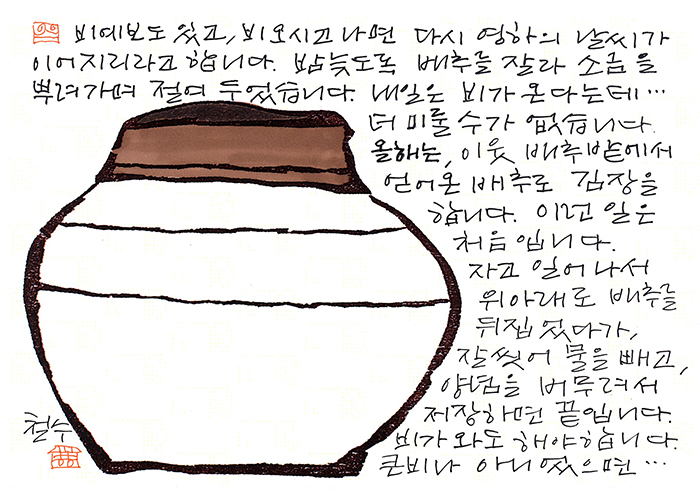 비예보도 있고, 비오시고 나면 다시 영하의 날씨가
이어지리라고 합니다. 밤늦도록 배추를 잘라 소금을
뿌려가며 절여 두었습니다. 내일은 비가 온다는데…
더 미룰 수가 없습니다.
올해는, 이웃 배추밭에서
얻어온 배추로 김장을
합니다. 이런 일은
처음입니다.
자고 일어나서
위아래로 배추를
뒤집었다가,
잘씻어 물을 빼고,
양념을 버무려서
저장하면 끝입니다.
비가 와도 해야합니다.
큰비나 아니었으면…
철수